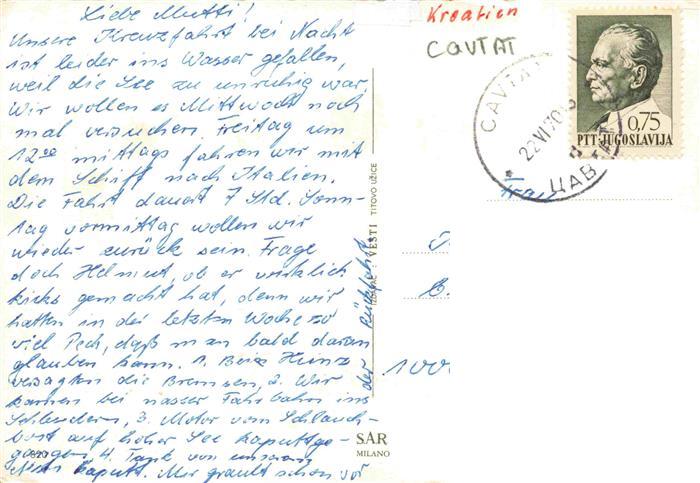 Liebe Mutti!
Unsere Kreuzfahrt bei Nacht
ist leider ins Wasser gefallen,
weil die See zu unruhig war.
Wir wollen es Mittwoch noch
mal versuchen. Freitag um
12.00 mittags fahren wir mit
dem Schiff nach Italien.
Die Fahrt dauert 7 Std. Sonn-
tag vormittag wollen wir
wieder zurück sein. Frage
doch Helmut, ob er wirklich
kicks gemacht hat, denn wir
hatten in der letzten Woche so
viel Pech, daß man bald daran
glauben kann. 1. Beix Heinz
versagten die Bremsen, 2. Wir
kamen bei nasser Fahrbahn ins
Schleudern, 3. Motor vom Schlauch-
boot auf hoher See kaputtge-
gangen, 4. Tank von unserem
Auto kaputt. Mir grault schon vor
der Rückfahrt
VESTI TITOVO UŽICE
SAR
MILANO
Kroatien
CAVTAT
CAVTAT
22 VI 70
ЦАВТАТ
0,75
PTT·JUGOSLAVIJA
Frau
100